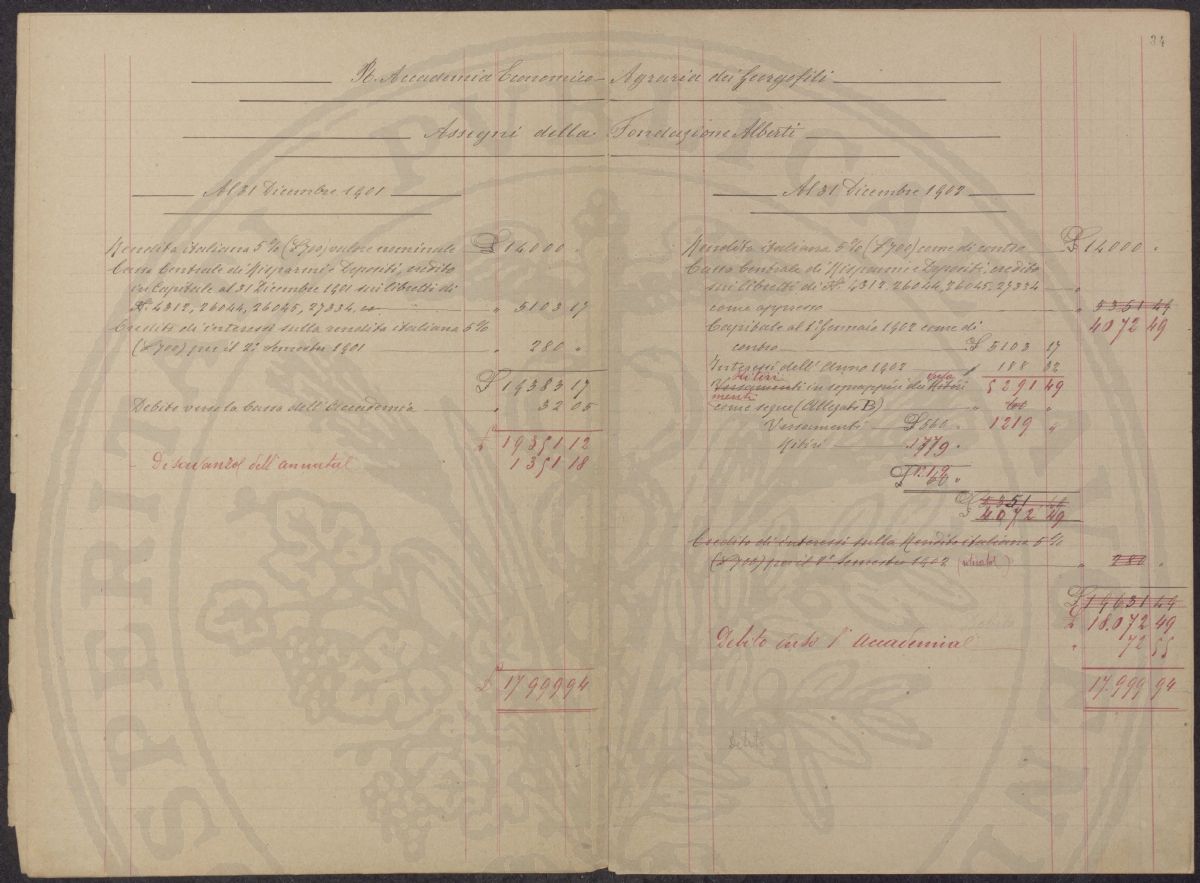 34
R. Accademia Economico Agraria dei Georgofili
Assegni della Fondazione Alberti
Al 31 Dicembre 1901
Rendita italiana 5% (£ 700) valore nominale £ 14000 "
Cassa Centrale di Risparmi e Depositi, credito
in Capitale al 31 Dicembre 1901 sui libretti di
N. 4312, 26044, 26045, 27334 " 5103 17
Credito di interessi sulla rendita italiana 5%
(£ 700) per il 2° Semestre 1901 " 280 "
£ 19383 17
Debito verso la Cassa dell'Accademia " 32 05
£ 19351 12
Disavanzo dell'annata 1351 18
£ 17999 94
Al 31 Dicembre 1902
Rendita italiana 5% (£ 700) come di contro £ 14000 "
Cassa Centrale di Risparmi e Depositi, credito
sui libretti di N. 4312, 26044, 26045, 27334
come appresso " 5351 49
4072 49
Capitale al 1° Gennaio 1902 come di
contro £ 5103 17
Interessi dell'Anno 1902 " 188 32
ritiri versa
Versamenti in soprappiù dei Ritiri 5291 49
menti
come segue (Allegato B) " 60 "
Versamenti £ 560 " 1219 "
Ritiri 1779 "
£ 1219
60 "
£ 5351 49
4072 49
Credito di interessi sulla Rendita italiana 5%
(£ 700) per il 2° Semestre 1902 (ritirato) " 280 "
£ 19631 49
Debito £ 18.072 49
Debito verso l'Accademia " 72 55
17.999 94
Debito
PERITATI PVBLICAE